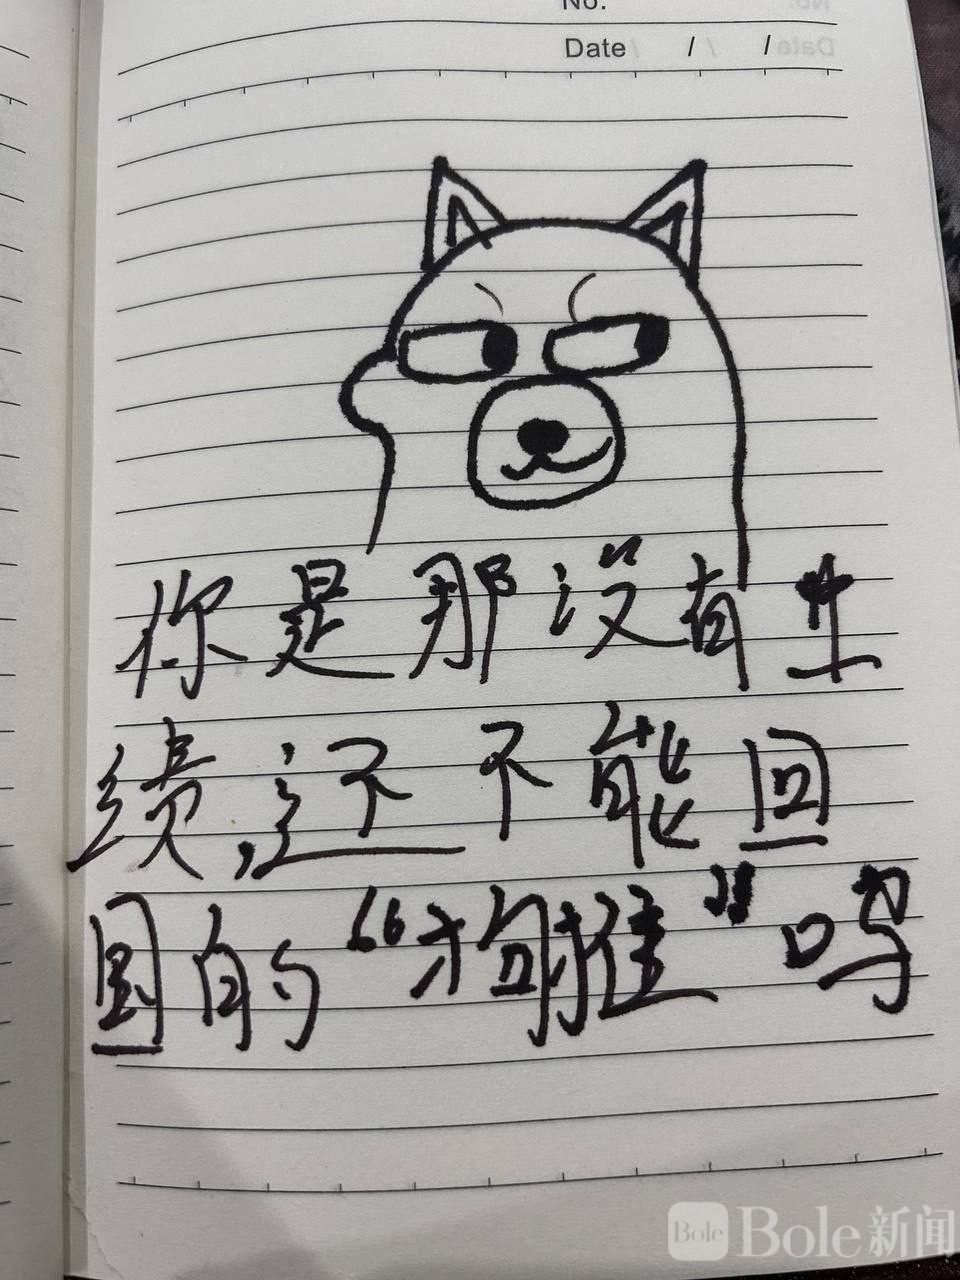 No.
Date / /
你是那没有业
绩,还不能回
国的“狗推”吗
Bole Bole新闻